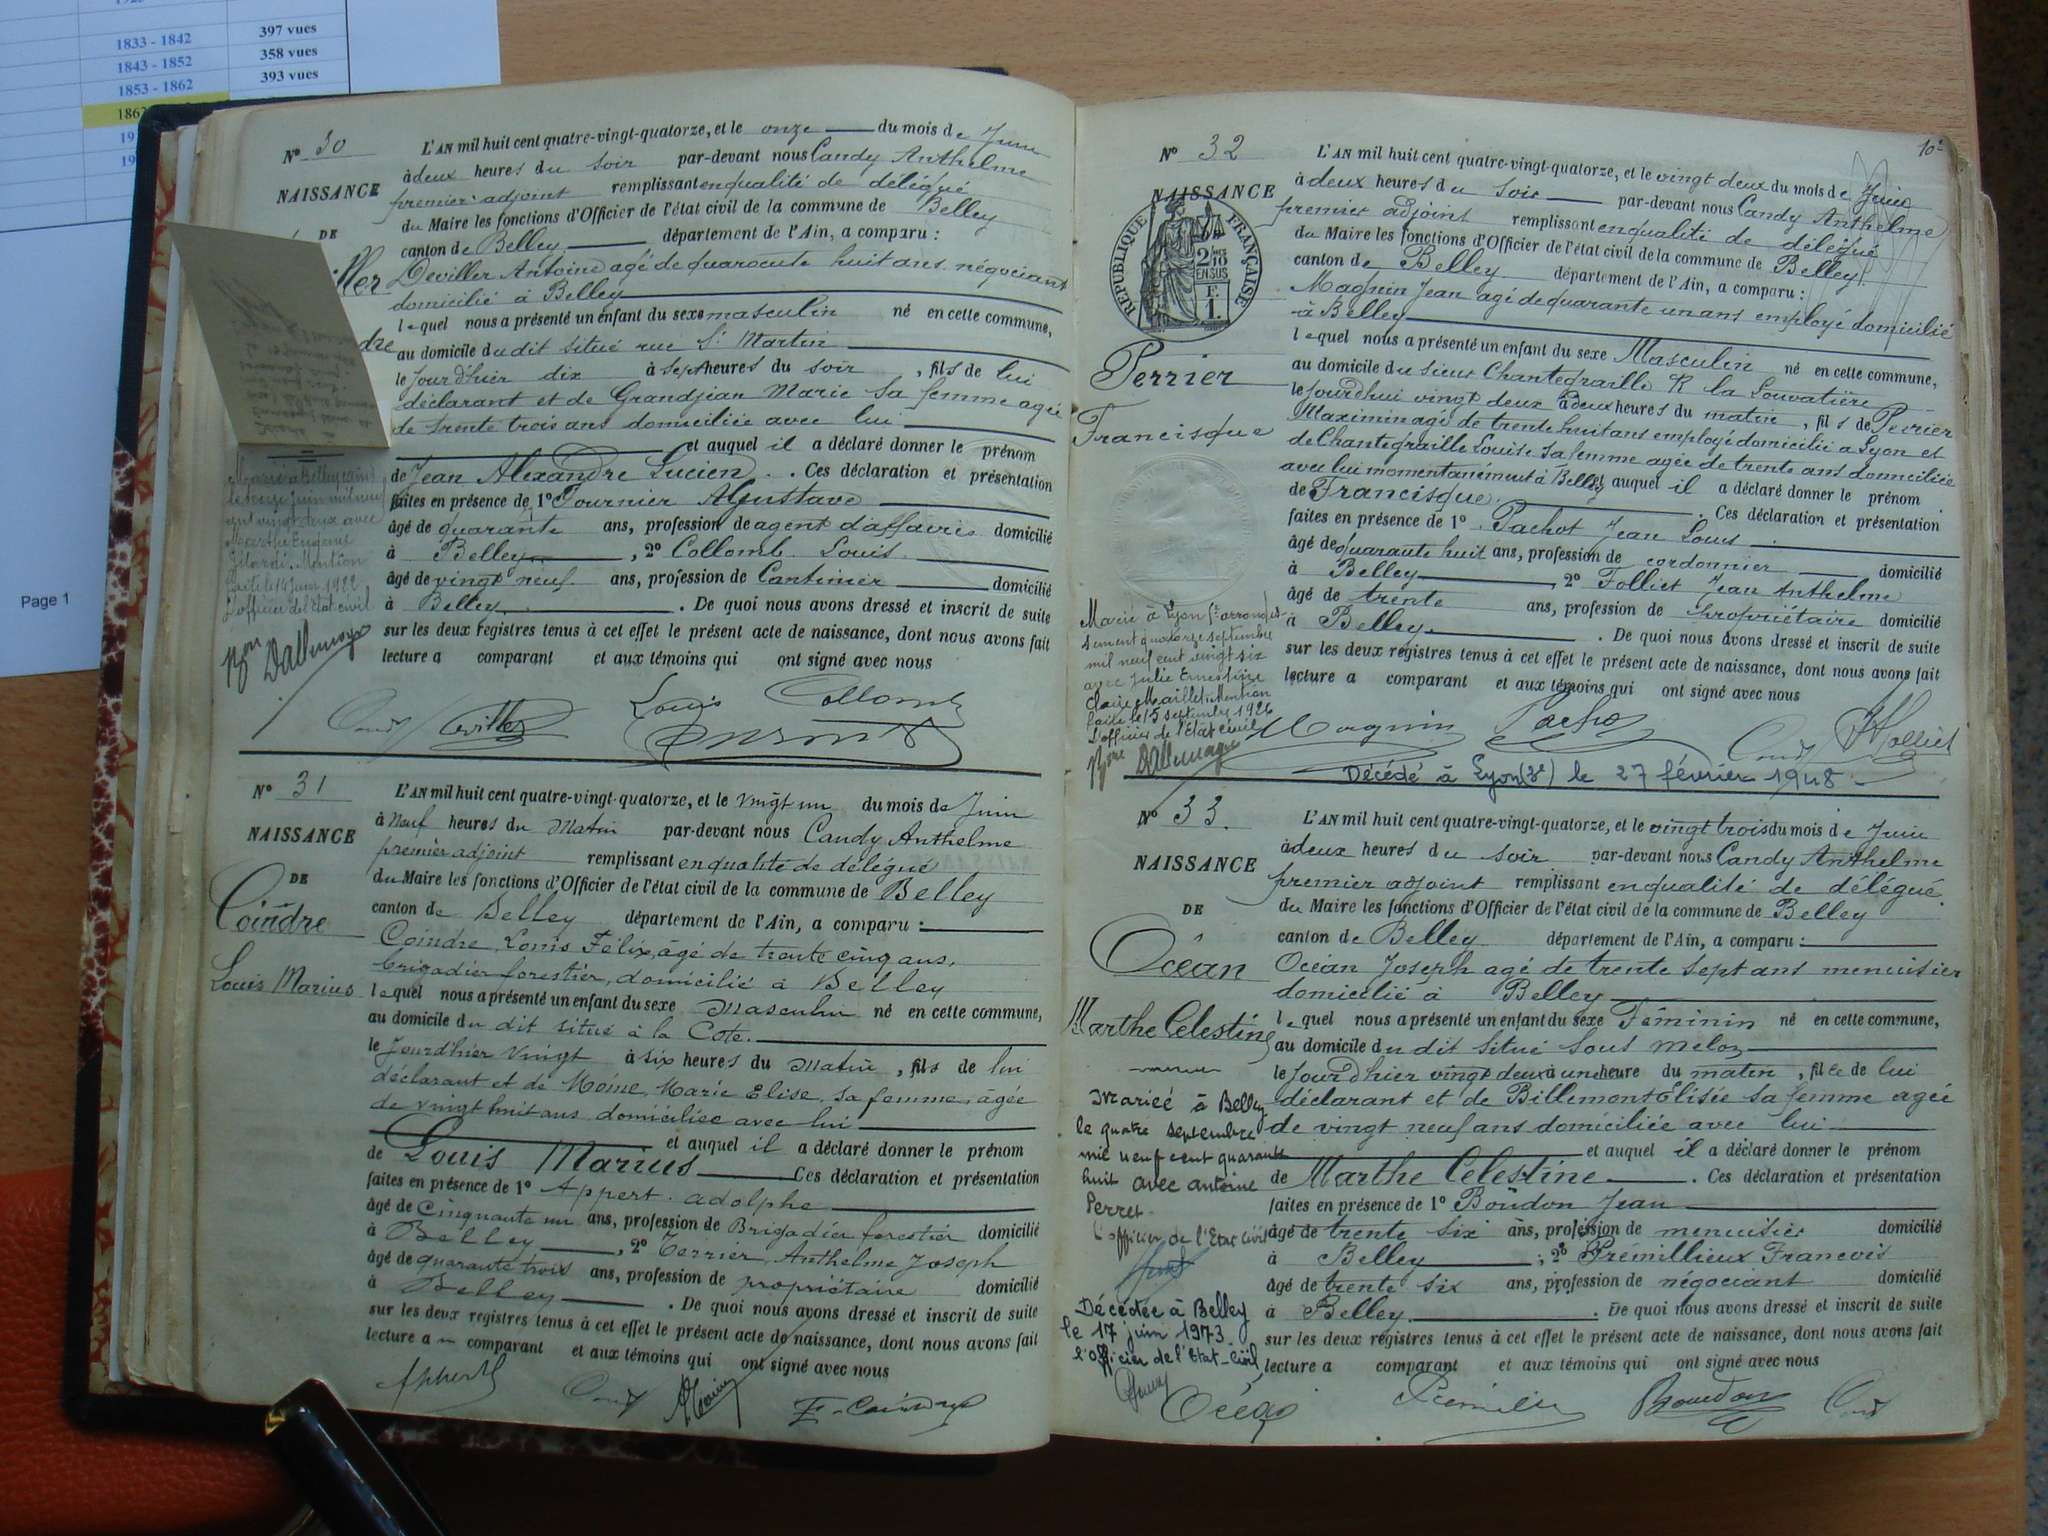 1833 - 1842 397 vues
1843 - 1852 358 vues
1853 - 1862 393 vues
186
19
Page 1
N° 30
NAISSANCE
DE
ller
dre
L'AN mil huit cent quatre-vingt-quatorze, et le onze du mois de Juin
à deux heures du soir par-devant nous Candy Anthelme
premier adjoint remplissant en qualité de délégué
du Maire les fonctions d'Officier de l'état civil de la commune de Belley
canton de Belley département de l'Ain, a comparu :
Deviller Antoine agé de quarante huit ans négociant
domicilié à Belley
lequel nous a présenté un enfant du sexe masculin né en cette commune,
au domicile dudit situé rue St Martin
le jour d'hier dix à sept heures du soir, fils de lui
déclarant et de Grandjean Marie sa femme agée
de trente trois ans domiciliée avec lui
et auquel il a déclaré donner le prénom
de Jean Alexandre Lucien. Ces déclaration et présentation
faites en présence de 1° Fournier Gustave
âgé de quarante ans, profession de agent d'affaires domicilié
à Belley, 2° Collomb Louis
âgé de vingt neuf ans, profession de Cantinier domicilié
à Belley. De quoi nous avons dressé et inscrit de suite
sur les deux registres tenus à cet effet le présent acte de naissance, dont nous avons fait
lecture a comparant et aux témoins qui ont signé avec nous
Marié à Belley
le seize Juin mil neuf
cent vingt deux avec
Marthe Eugénie
Mention
faite le 16 Juin 1922
L'officier de l'état civil
Dallemagne
Candy Deviller Louis Collomb
N° 31
NAISSANCE
DE
Coindre
Louis Marius
L'AN mil huit cent quatre-vingt-quatorze, et le vingt un du mois de Juin
à neuf heures du matin par-devant nous Candy Anthelme
premier adjoint remplissant en qualité de délégué
du Maire les fonctions d'Officier de l'état civil de la commune de Belley
canton de Belley département de l'Ain, a comparu :
Coindre Louis Félix, âgé de trente cinq ans,
brigadier forestier, domicilié à Belley
lequel nous a présenté un enfant du sexe masculin né en cette commune,
au domicile du dit situé à la Côte.
le Jour d'hier vingt à six heures du matin, fils de lui
déclarant et de Moine Marie Elise, sa femme, âgée
de vingt huit ans domiciliée avec lui
et auquel il a déclaré donner le prénom
de Louis Marius Ces déclaration et présentation
faites en présence de 1° Appert adolphe
âgé de cinquante un ans, profession de Brigadier forestier domicilié
à Belley, 2° Terrier, Anthelme Joseph
âgé de quarante trois ans, profession de propriétaire domicilié
à Belley. De quoi nous avons dressé et inscrit de suite
sur les deux registres tenus à cet effet le présent acte de naissance, dont nous avons fait
lecture au comparant et aux témoins qui ont signé avec nous
Appert Candy F. Coindre
10
N° 32
NAISSANCE
REPUBLIQUE FRANÇAISE
2/10 EN SUS
F.
1.
Perrier
Francisque
L'AN mil huit cent quatre-vingt-quatorze, et le vingt deux du mois de Juin
à deux heures du soir par-devant nous Candy Anthelme
premier adjoint remplissant en qualité de délégué
du Maire les fonctions d'Officier de l'état civil de la commune de Belley
canton de Belley département de l'Ain, a comparu :
Magnin Jean agé de quarante un ans employé domicilié
à Belley
lequel nous a présenté un enfant du sexe Masculin né en cette commune,
au domicile du sieur Chantegraille R la Louvatière
le jourdhui vingt deux à deux heures du matin, fils de Perrier
Maximin agé de trente huit ans employé domicilié a Lyon et
de Chantegraille Louise sa femme agée de trente ans domiciliée
avec lui momentanément à Belley et auquel il a déclaré donner le prénom
de Francisque. Ces déclaration et présentation
faites en présence de 1° Pachot Jean Louis
âgé de quarante huit ans, profession de cordonnier domicilié
à Belley 2° Folliet Jean Anthelme
âgé de trente ans, profession de propriétaire domicilié
à Belley. De quoi nous avons dressé et inscrit de suite
sur les deux registres tenus à cet effet le présent acte de naissance, dont nous avons fait
lecture a comparant et aux témoins qui ont signé avec nous
Marié à Lyon arrondis-
sement quatorze septembre
mil neuf cent vingt six
avec Julie Ernestine
Claire Maillet. Mention
faite le 15 septembre 1926
L'officier de l'état civil
Dallemagne
Magnin Pachot Candy Folliet
Décédé à Lyon (3e) le 27 février 1948
N° 33.
NAISSANCE
DE
Océan
Marthe Celestine
L'AN mil huit cent quatre-vingt-quatorze, et le vingt trois du mois de Juin
à deux heures du soir par-devant nous Candy Anthelme
premier adjoint remplissant en qualité de délégué.
du Maire les fonctions d'Officier de l'état civil de la commune de Belley
canton de Belley département de l'Ain, a comparu :
Océan Joseph agé de trente sept ans menuisier
domicilié à Belley
lequel nous a présenté un enfant du sexe Féminin né en cette commune,
au domicile du dit situé Sous Meloz
le Jour d'hier vingt deux à une heure du matin, fille de lui
déclarant et de Billemont Elisée sa femme agée
de vingt neuf ans domiciliée avec lui
et auquel il a déclaré donner le prénom
de Marthe Celestine. Ces déclaration et présentation
faites en présence de 1° Boudon Jean
âgé de trente six ans, profession de menuisier domicilié
à Belley; 2° Prémillieux Francois
âgé de trente six ans, profession de négociant domicilié
à Belley. De quoi nous avons dressé et inscrit de suite
sur les deux registres tenus à cet effet le présent acte de naissance, dont nous avons fait
lecture a comparant et aux témoins qui ont signé avec nous
Mariée à Belley
le quatre septembre
mil neuf cent quarante
huit avec antoine
Perret.
L'officier de l'Etat Civil
Décédée à Belley
le 17 juin 1973.
l'Officier de l'Etat-Civil,
Océan Boudon Candy